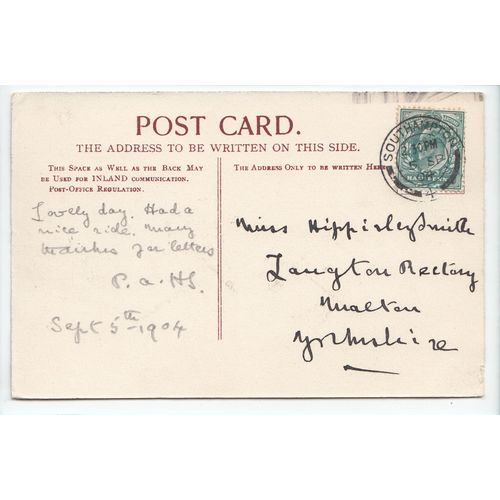 POST CARD.
THE ADDRESS TO BE WRITTEN ON THIS SIDE.
THIS SPACE AS WELL AS THE BACK MAY
BE USED FOR INLAND COMMUNICATION.
POST-OFFICE REGULATION.
THE ADDRESS ONLY TO BE WRITTEN HERE
SOUTHAMPTON
PM
SP
4
Lovely day. Had a
nice ride. Many
for letters
Sept 5th 1904
Miss HippisleySmith
Langton Rectory
Malton
Yorkshire